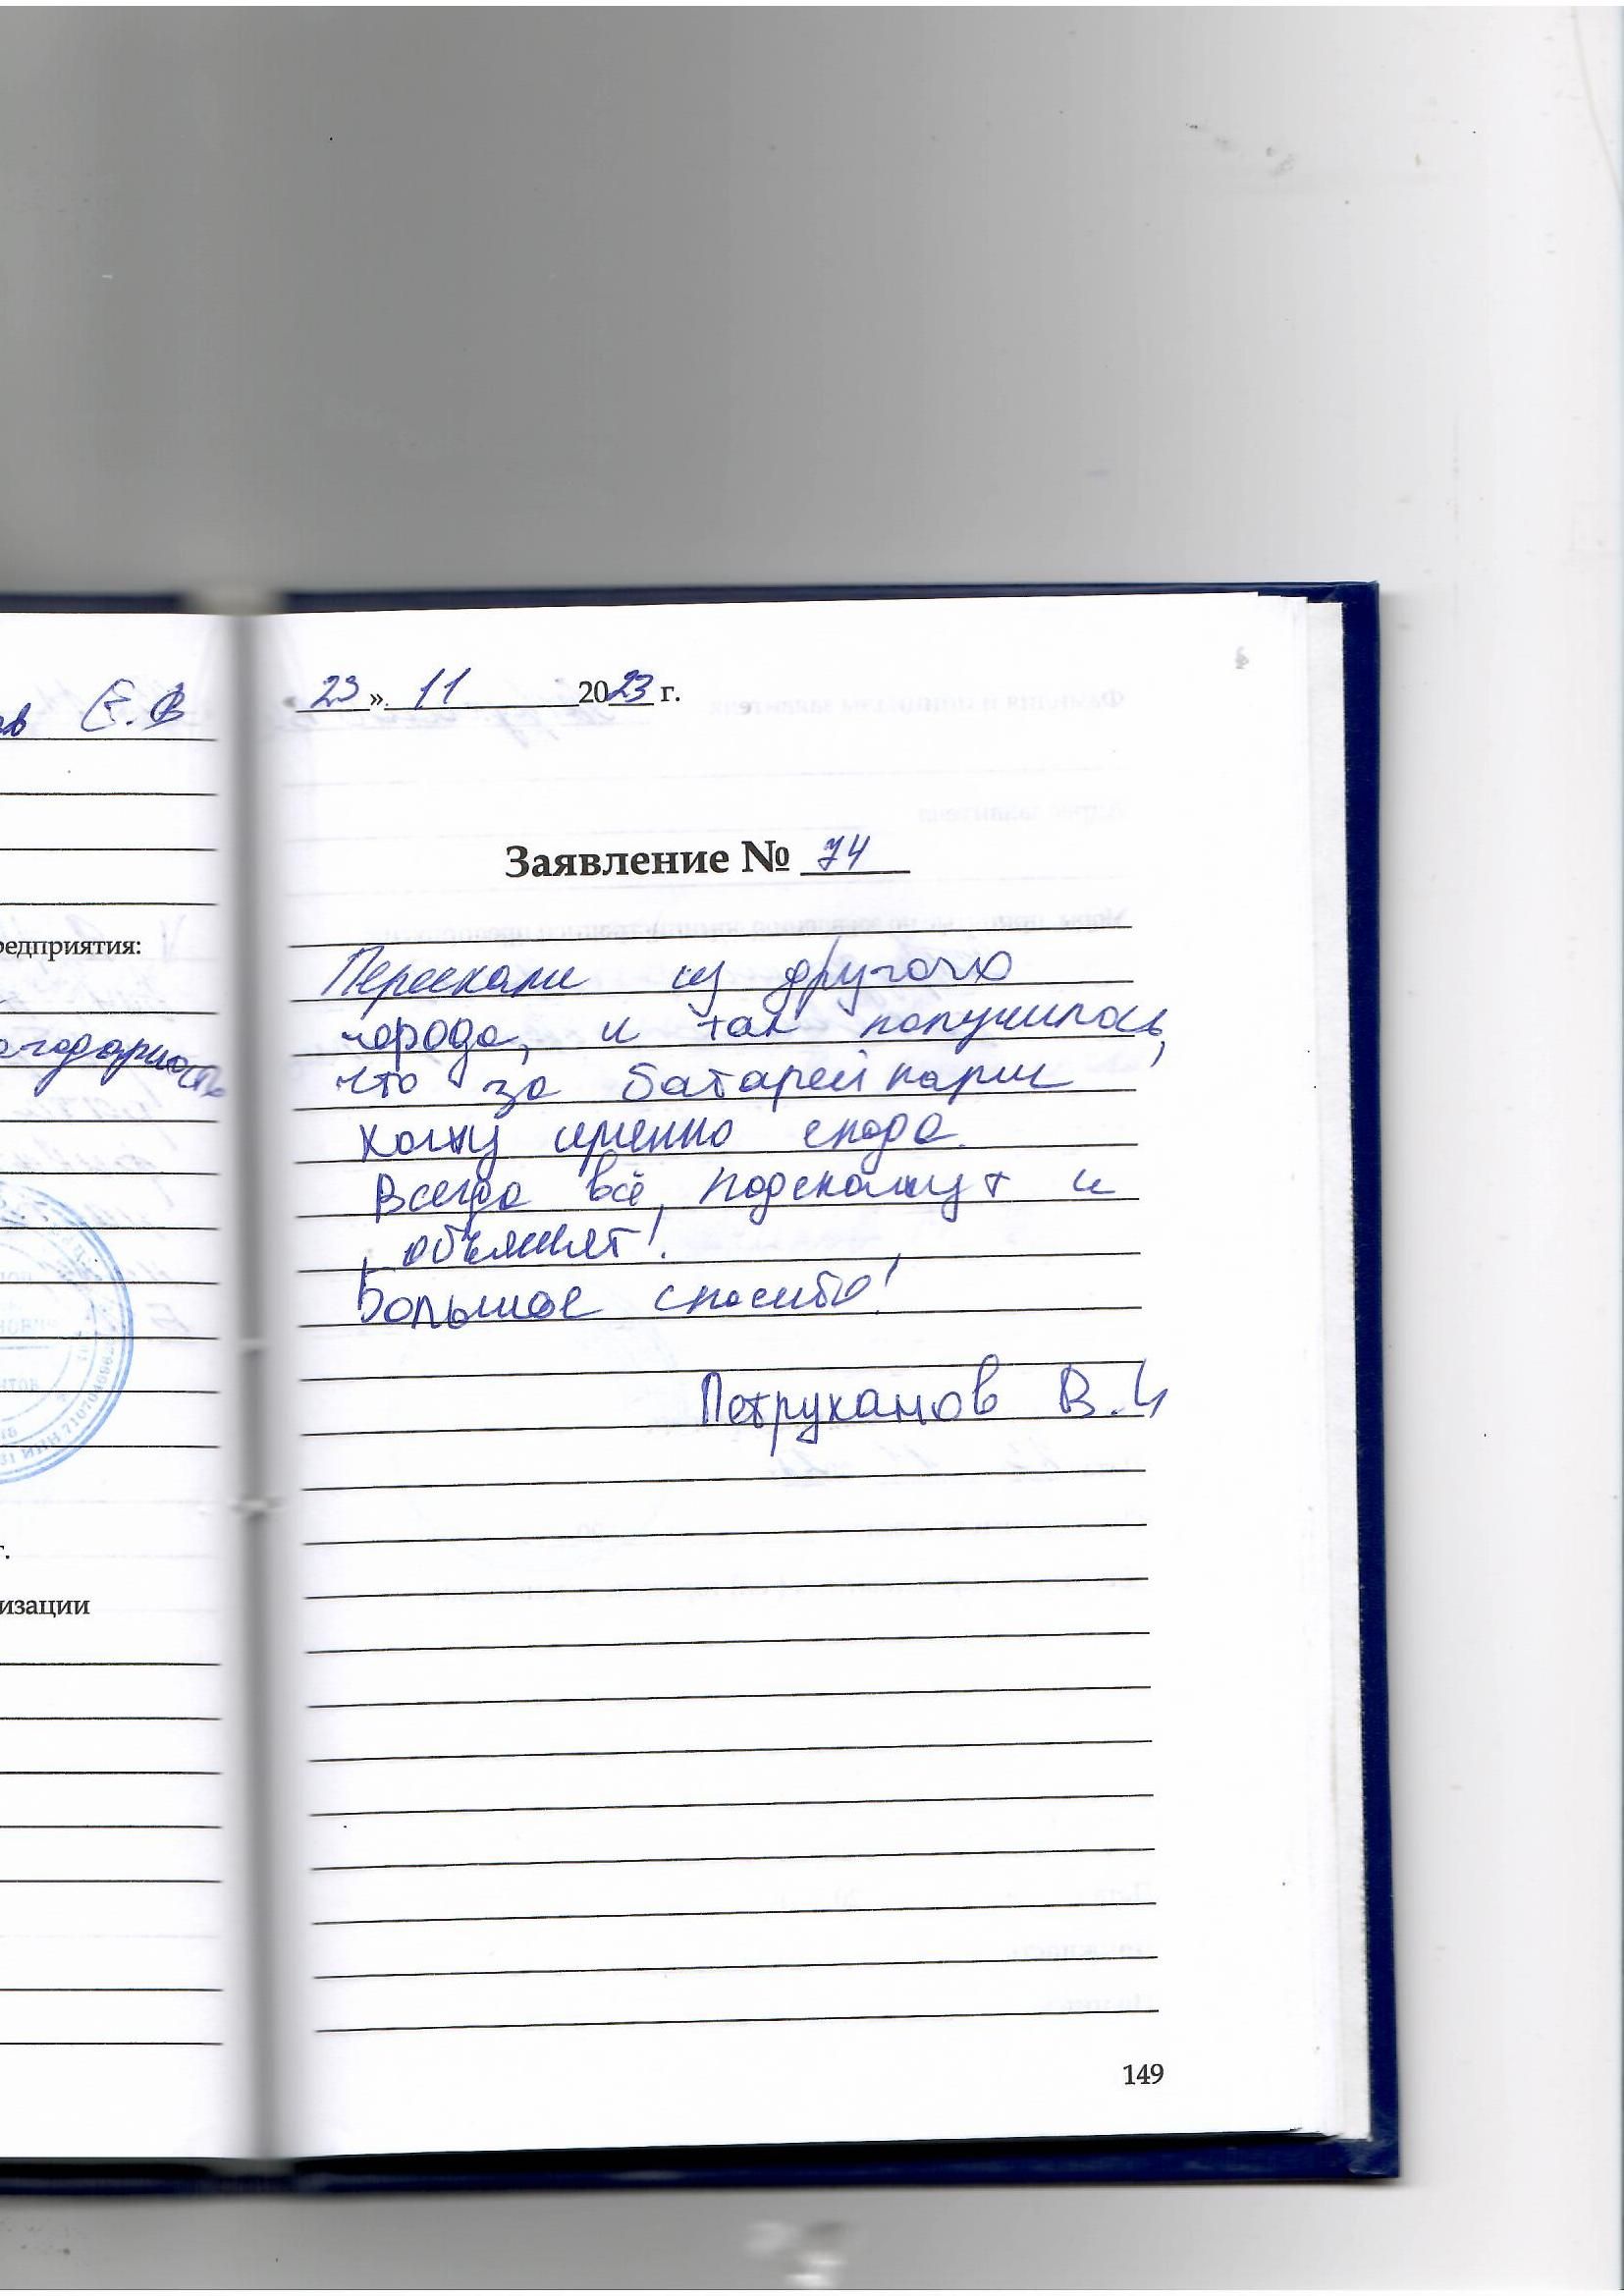 Е.В
едприятия:
изации
23 ». 11 2023 г.
Заявление № 74
Переехали из другого
города, и так получилось,
что за батарейками
хожу именно сюда.
Всегда всё подскажут и
объяснят!
Большое спасибо!
Петруханов В.И
149